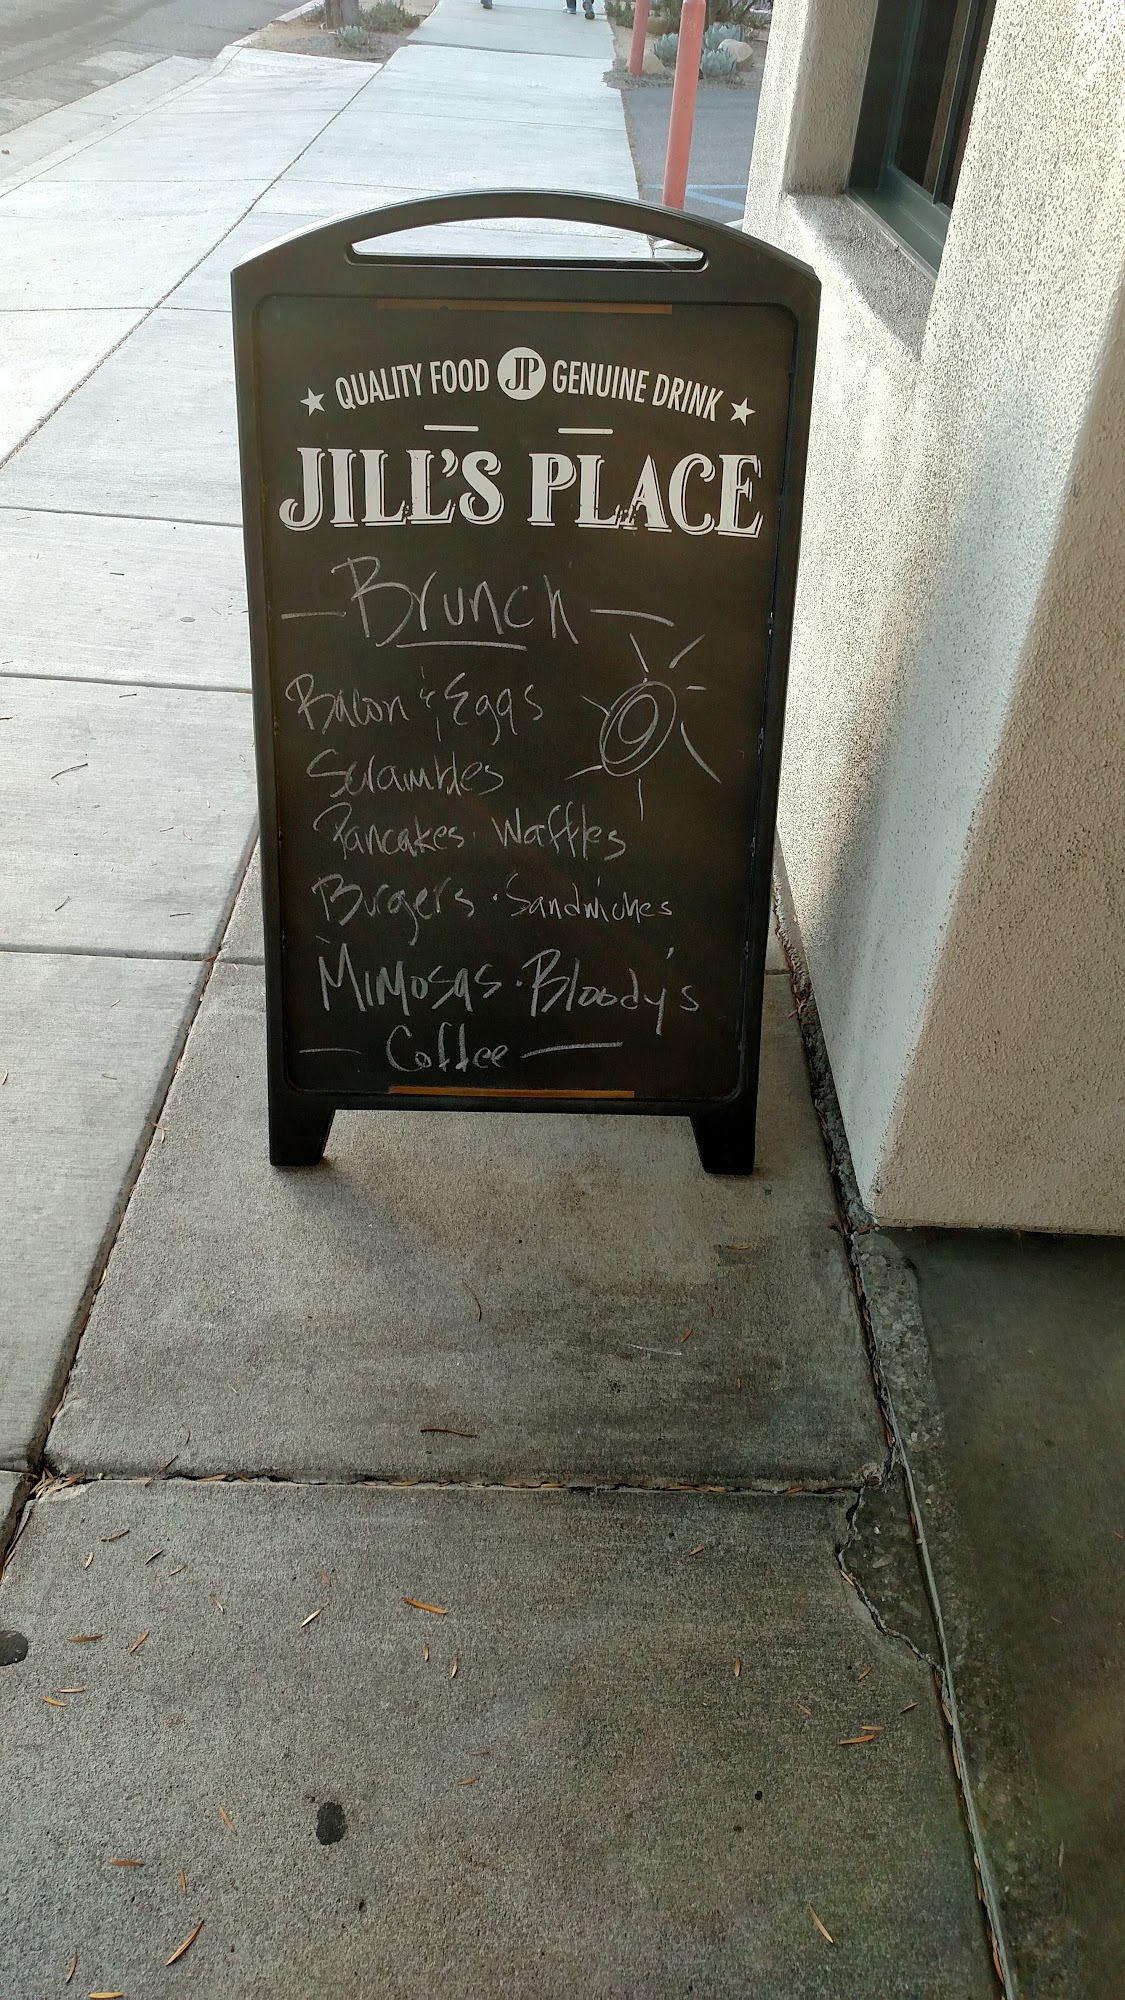 ★ QUALITY FOOD JP GENUINE DRINK ★
JILL'S PLACE
— Brunch —
Bacon & Eggs
Scrambles
Pancakes · Waffles
Burgers · Sandwiches
Mimosas · Bloody's
— Coffee —